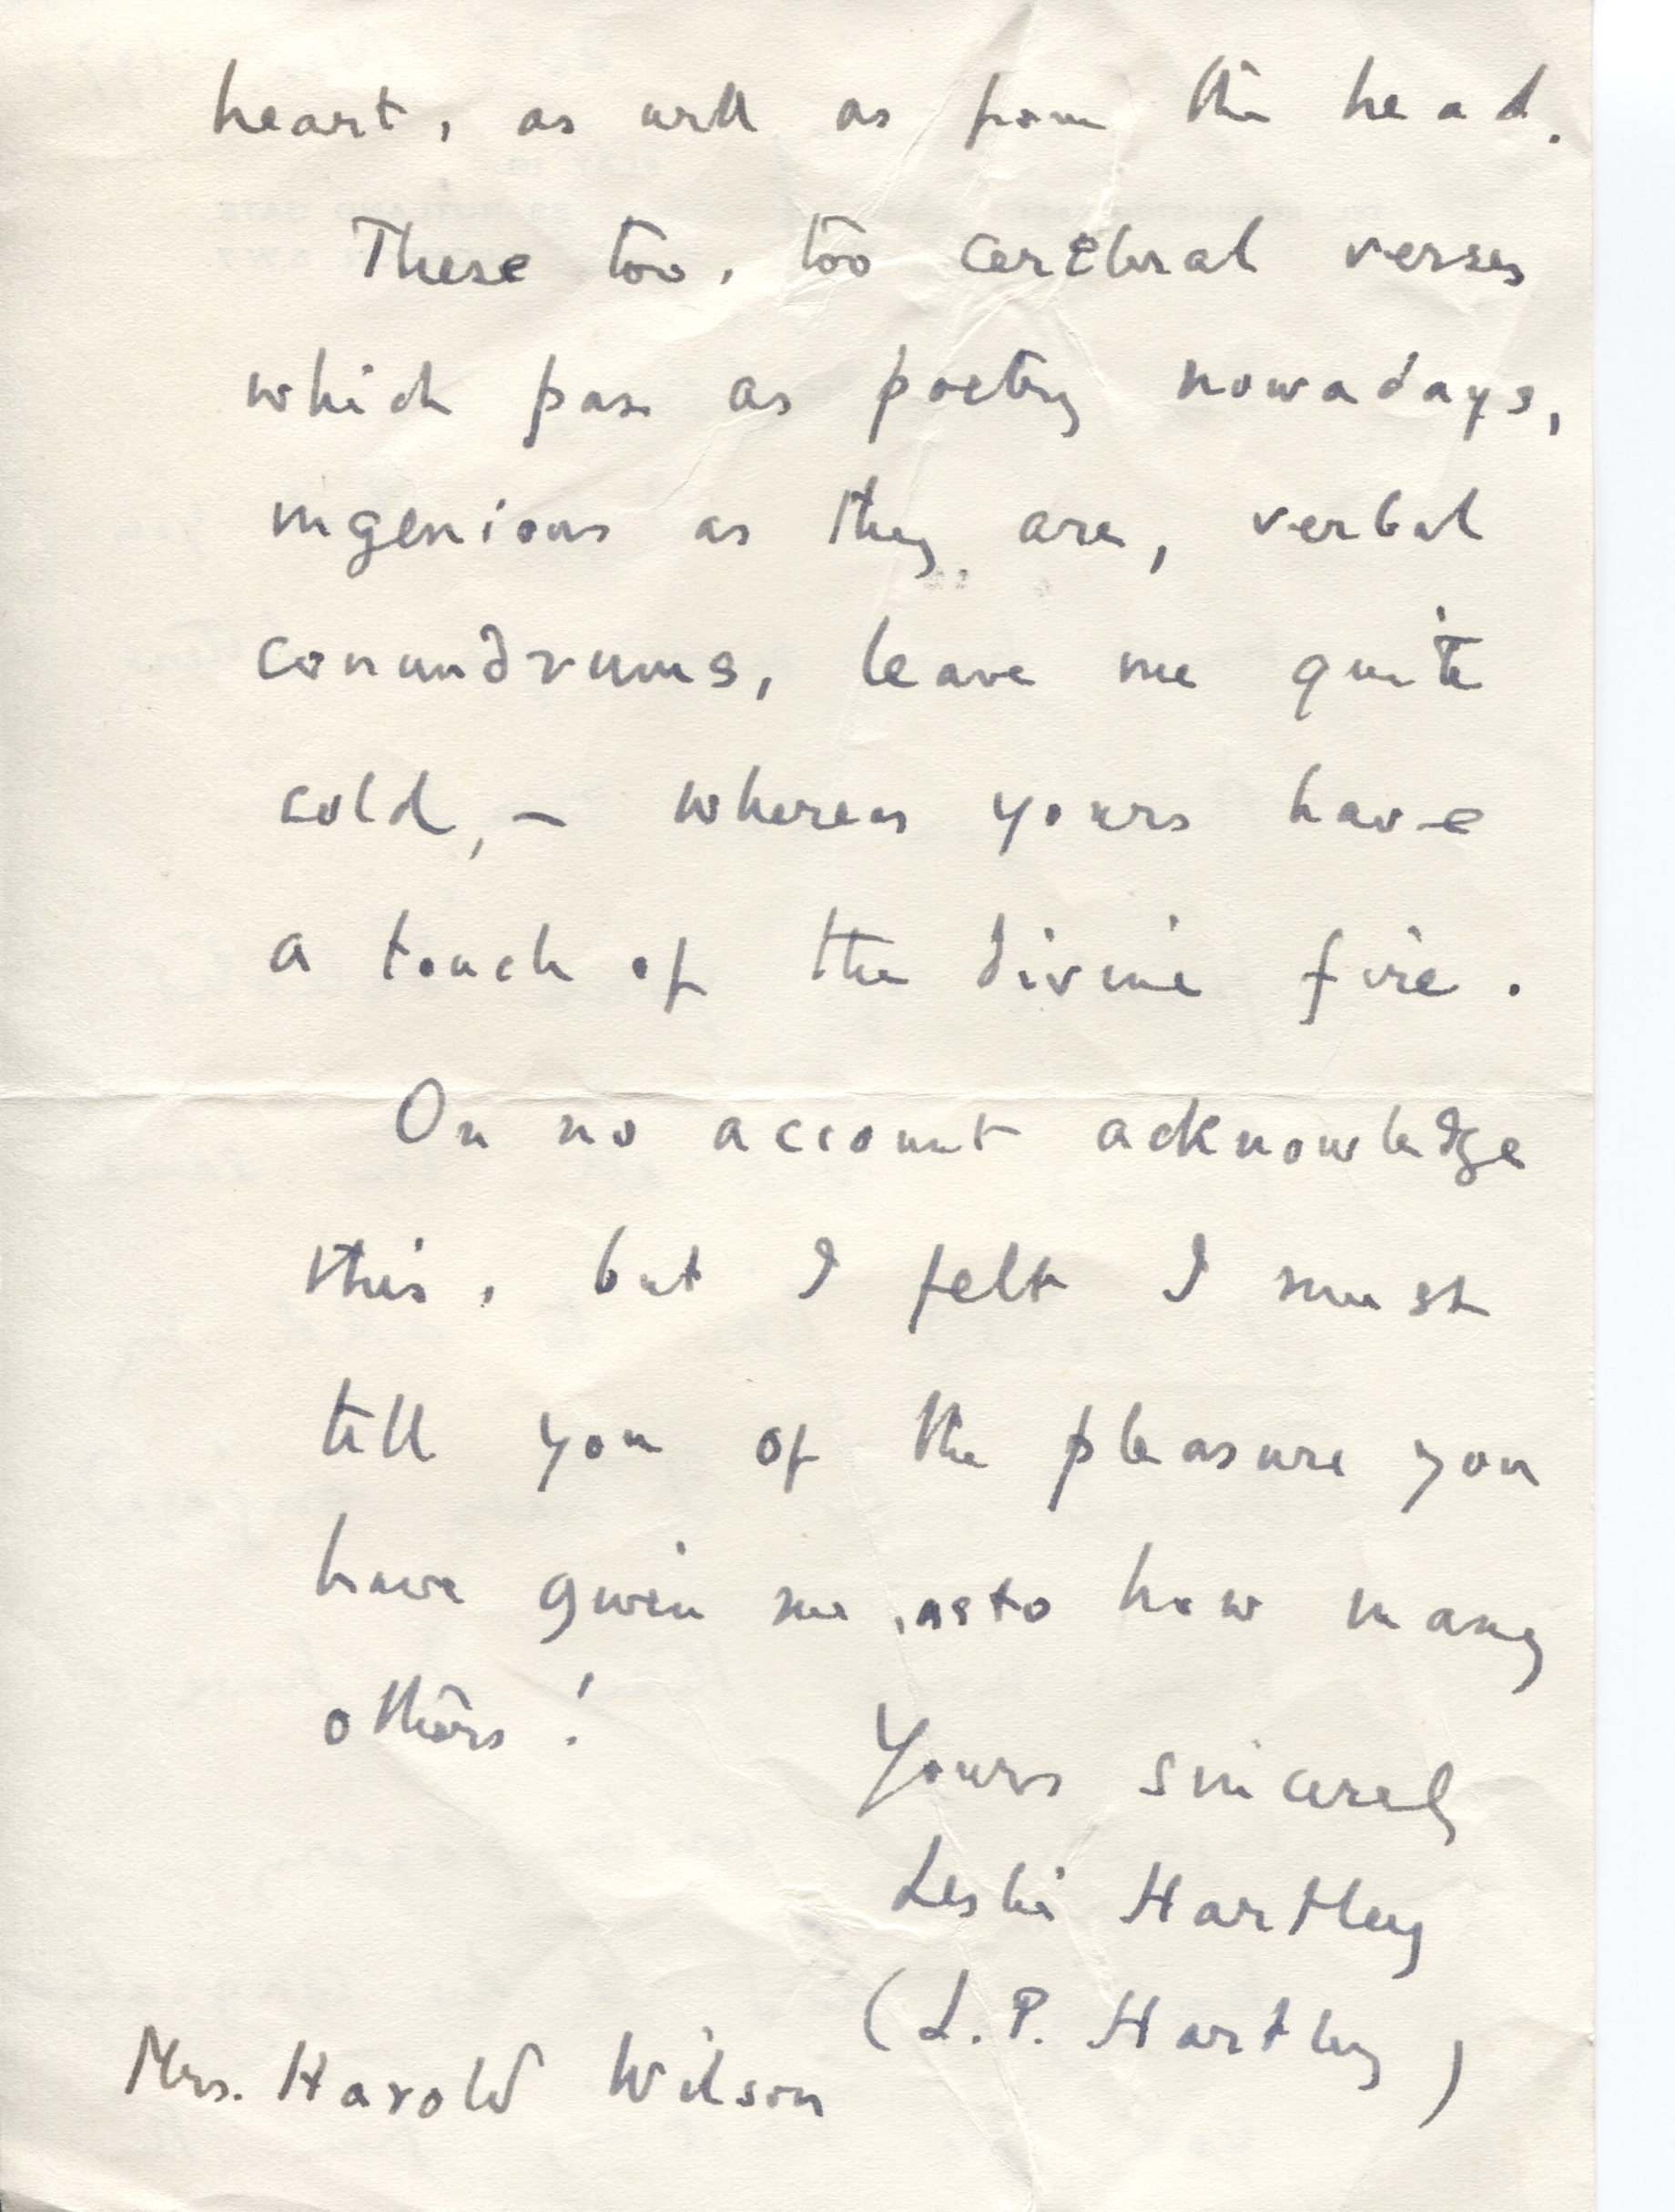 heart, as well as from the head.
These too, too cerebral verses
which pass as poetry nowadays,
ingenious as they are, verbal
conundrums, leave me quite
cold, – whereas yours have
a touch of the divine fire.
On no account acknowledge
this, but I felt I must
tell you of the pleasure you
have given me, as to how many
others!
Yours sincerely
Leslie Hartley
(L.P. Hartley)
Mrs. Harold Wilson